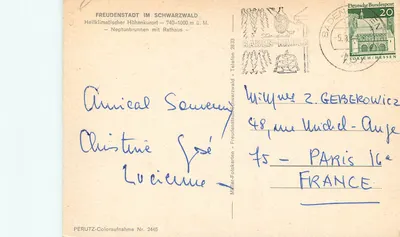 FREUDENSTADT IM SCHWARZWALD
Heilklimatischer Höhenkurort – 740-1000 m ü. M.
– Neptunbrunnen mit Rathaus –
Amical Souvenir
Christine José
Lucienne
PERUTZ-Coloraufnahme Nr. 2445
Freudenstadt/Schwarzwald – Telefon
Deutsche Bundespost
20
Z. GEBEROWICZ
48, rue Michel-Ange
75 – PARIS 16e
FRANCE